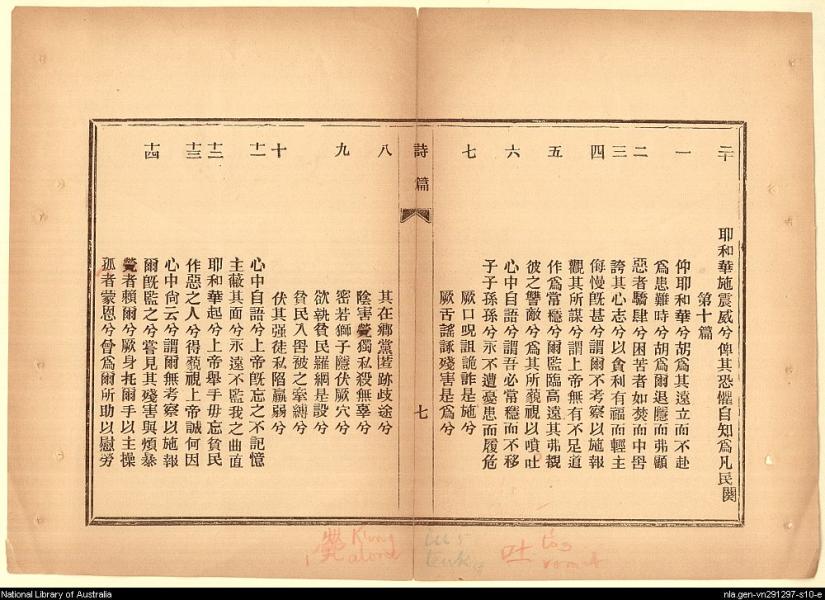 二十
耶和華施震威兮俾其恐懼自知為凡民関
第十篇
一
仰耶和華兮胡為其遠立而不赴
為患難時兮胡為爾退隱而弗顧
二
惡者驕肆兮困苦者如焚而中罟
三
誇其心志兮以貪利有福而輕主
四
侮慢旣甚兮謂爾不考察以施報
觀其所謀兮謂上帝無有不足道
五
作為常穩兮爾監臨高遠其弗覩
彼之讐敵兮為其所藐視以噴吐
六
心中自語兮謂吾必常穩而不移
子子孫孫兮永不遭憂患而履危
七
厥口呪詛詭詐是施兮
厥舌謠諑殘害是為兮
詩篇
七
八
其在鄉黨匿跡歧途兮
陰害煢獨私殺無辜兮
九
密若獅子隱伏厥穴兮
欲執貧民羅網是設兮
貧民入罟被之牽縛兮
十
伏其强徒私陷羸弱兮
十一
心中自語兮上帝旣忘之不記憶
主蔽其面兮永遠不監我之曲直
十二
耶和華起兮上帝舉手毋忘貧民
十三
作惡之人兮得藐視上帝誠何因
心中尙云兮謂爾無考察以施報
十四
爾旣監之兮嘗見其殘害與煩暴
煢者賴爾兮厥身托爾手以主操
孤者蒙恩兮曾為爾所助以慰勞
煢 Kiung alone
吐 vomit
National Library of Australia
nla.gen-vn291297-s10-e